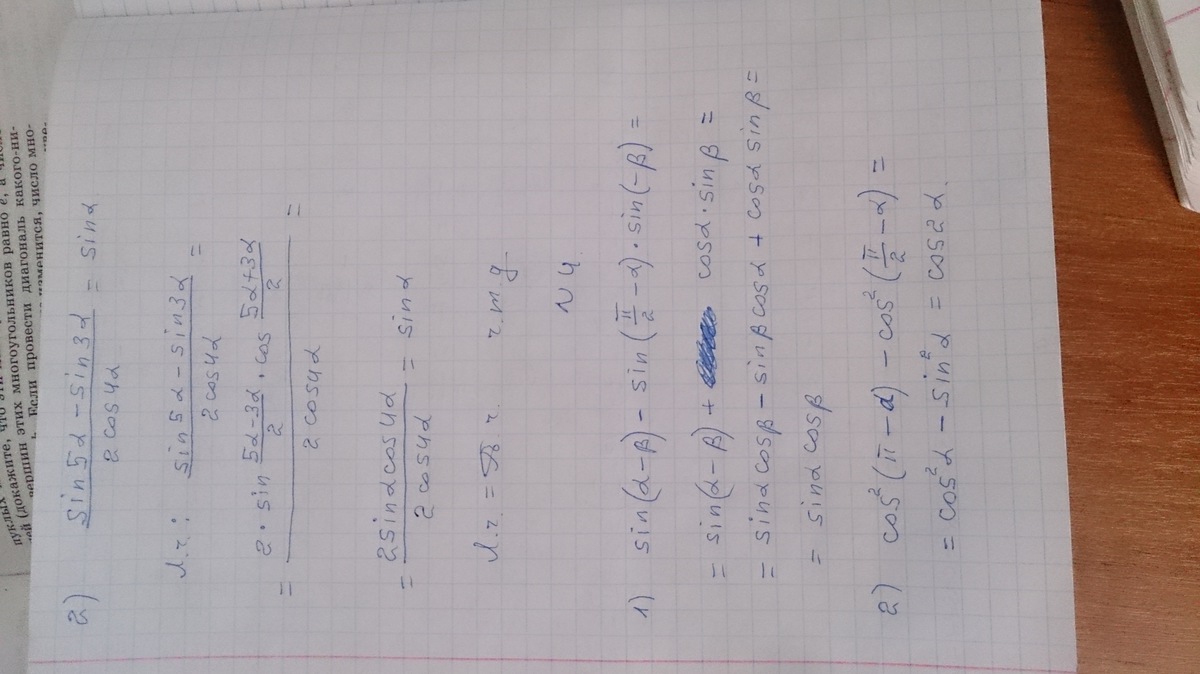 2) (sin5α - sin3α)/(2cos4α) = sinα
л.ч: (sin5α - sin3α)/(2cos4α) =
= (2 · sin (5α-3α)/2 · cos (5α+3α)/2)/(2cos4α) =
= (2sinαcos4α)/(2cos4α) = sinα
л.ч. = п.ч. ч.т.д
N4.
1) sin(α-β) - sin(π/2 - α) · sin(-β) =
= sin(α-β) + cosα · sinβ =
= sinαcosβ - sinβcosα + cosαsinβ =
= sinαcosβ
2) cos²(π - α) - cos²(π/2 - α) =
= cos²α - sin²α = cos2α.
вершин этих многоугольников равно
Если провести диагональ какого-ни-
изменится, число мно-